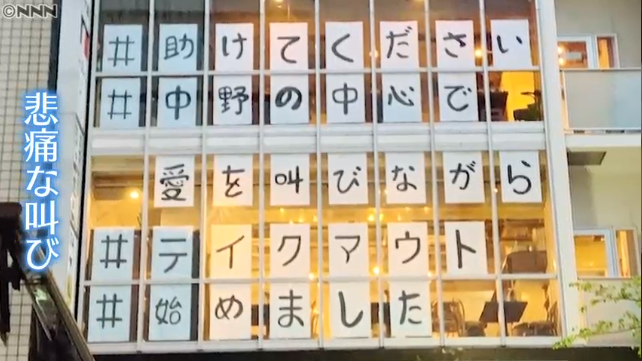 ©NNN
悲痛な叫び
#助けてください
#中野の中心で
愛を叫びながら
#テイクアウト
#始めました